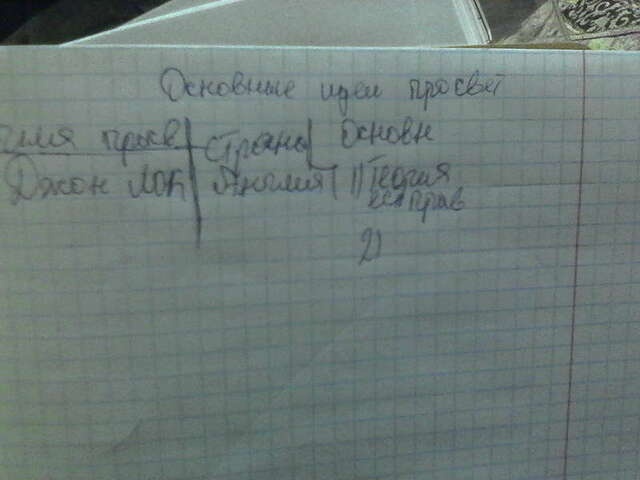 Основные идеи просвет
имя просв Страны Основн
Джон Лок Англия 1) Теория
ест прав
2)